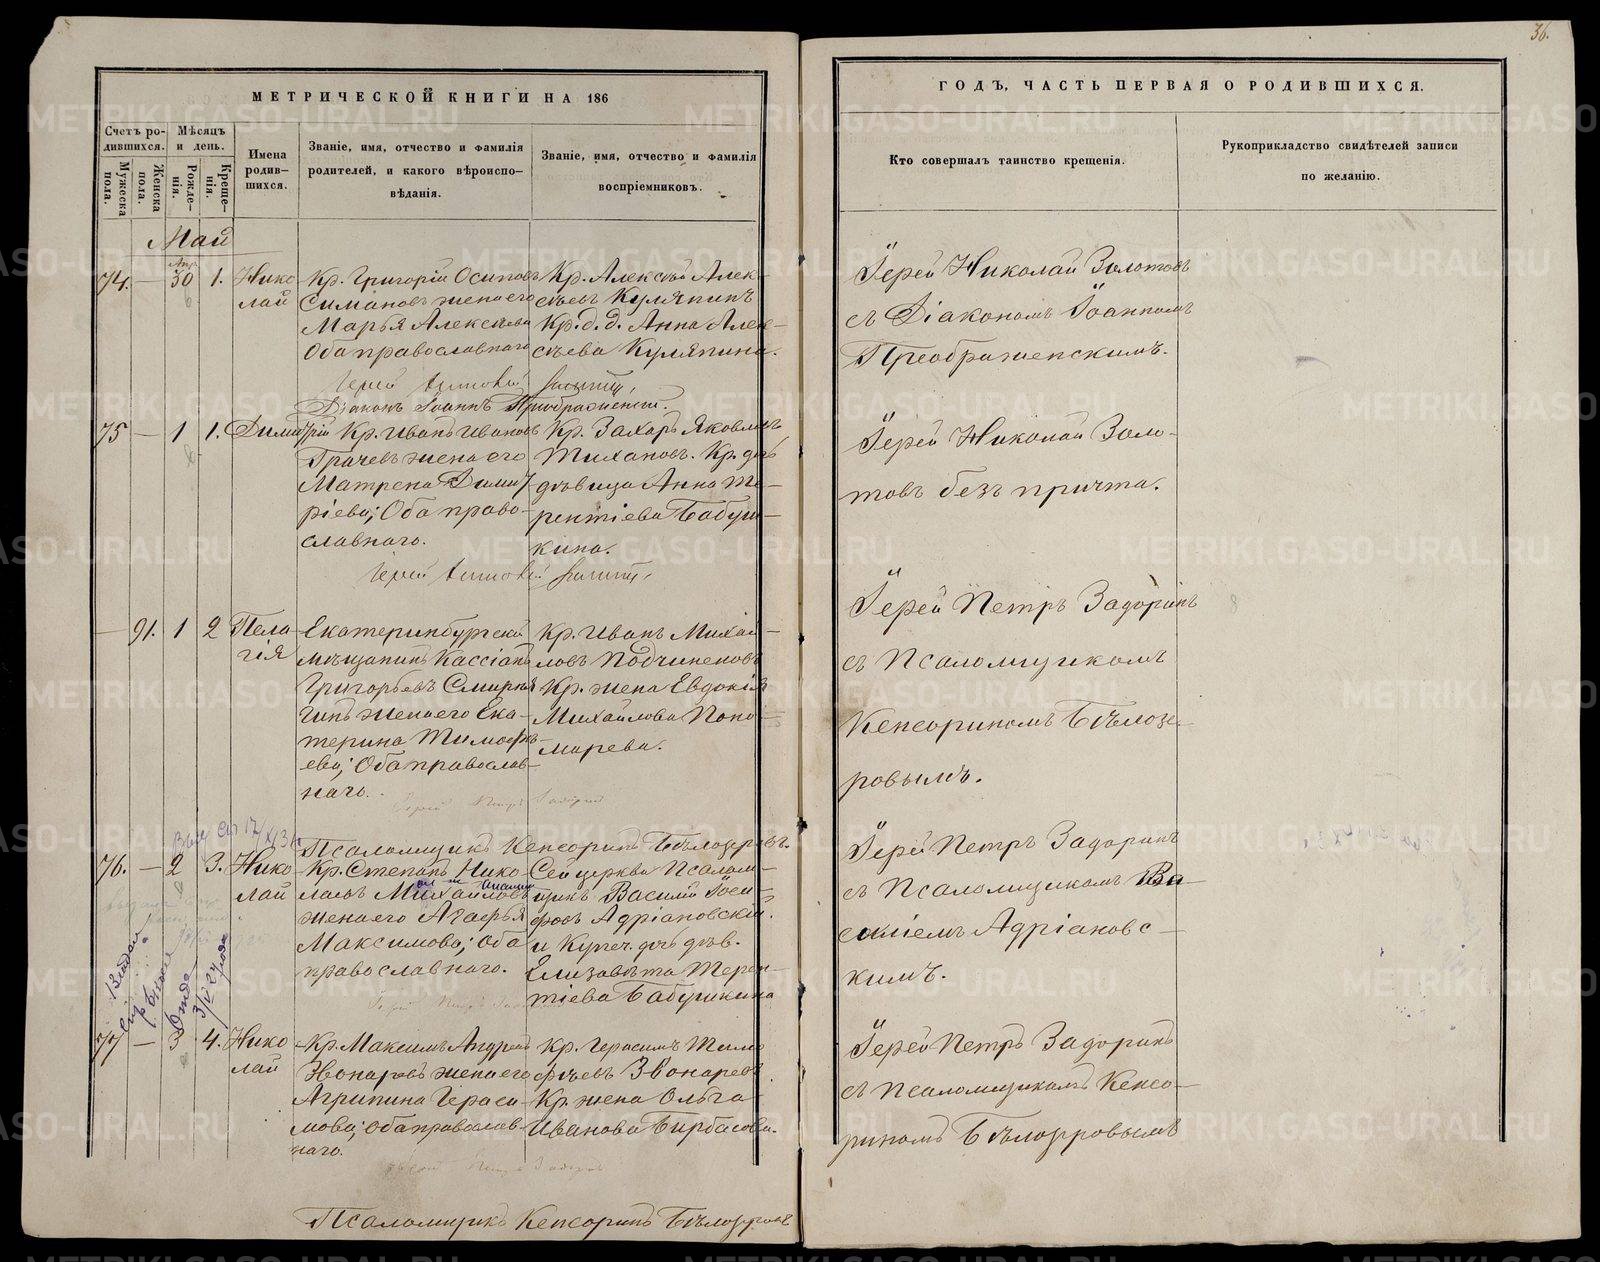 36.
МЕТРИЧЕСКОЙ КНИГИ НА 186
ГОДЪ, ЧАСТЬ ПЕРВАЯ О РОДИВШИХСЯ.
Счетъ ро-
дившихся.
Мужеска
пола.
Женска
пола.
Мѣсяцъ
и день.
Рожде-
нія.
Креще-
нія.
Имена
родив-
шихся.
Званіе, имя, отчество и фамилія
родителей, и какого вѣроиспо-
вѣданія.
Званіе, имя, отчество и фамилія
воспріемниковъ.
Кто совершалъ таинство крещенія.
Рукоприкладство свидѣтелей записи
по желанію.
Май
74. — Апр. 30 1. Нико
лай
Кр. Григорій Осиповъ
Симановъ жена его
Марья Алексѣева
Оба православнаго
Кр. Алексѣй Алек-
сѣевъ Куляпинъ
Кр. д. д. Анна Алек-
сѣева Куляпина.
Іерей Николай Золотовъ
съ Діакономъ Іоанномъ
Преображенскимъ.
Діаконъ Іоаннъ Преображенскій.
75 — 1 1. Димитрій
Кр. Иванъ Ивановъ
Грачевъ жена его
Матрена Димит-
ріева; Оба право-
славнаго.
Кр. Захаръ Яковлевъ
Тихановъ. Кр. дчь
дѣвица Анна Те-
рентіева Бабуш-
кина.
Іерей Николай Золо-
товъ безъ причта.
— 91. 1 2 Пела
гія
Екатеринбургскій
мѣщанинъ Кассіанъ
Григорьевъ Смирня
гинъ жена его Ека-
терина Тимофѣ-
ева; Оба православ-
наго.
Кр. Иванъ Михай-
ловъ Подчиненовъ
Кр. жена Евдокія
Михайлова Поно-
марева.
Іерей Петръ Задоринъ
съ Псаломщикомъ
Кенсориномъ Бѣлозе-
ровымъ.
Іерей Петръ Задоринъ
Псаломщикъ Кенсоринъ Бѣлозеровъ.
76. — 2 3. Нико
лай
Кр. Степанъ Нико
лаевъ Михайловъ
жена его Агафья
Максимова; Оба
православнаго.
Сей церкви Псалом-
щикъ Василій Іоси-
фовъ Адріановскій
и Купеч. дчь дѣв.
Елизавета Терен-
тіева Бабушкина
Іерей Петръ Задоринъ
съ Псаломщикомъ Ва-
силіемъ Адріановс-
кимъ.
77 — 3 4. Нико
лай
Кр. Максимъ Андреевъ
Звонаревъ жена его
Агрипина Гераси-
мова; Оба православ-
наго.
Кр. Герасимъ Тимо
фѣевъ Звонаревъ.
Кр. жена Ольга
Иванова Бирбасова.
Іерей Петръ Задоринъ
съ Псаломщикомъ Кенсо-
риномъ Бѣлозеровымъ
Псаломщикъ Кенсоринъ Бѣлозеровъ
METRIKI.GASO-URAL.RU